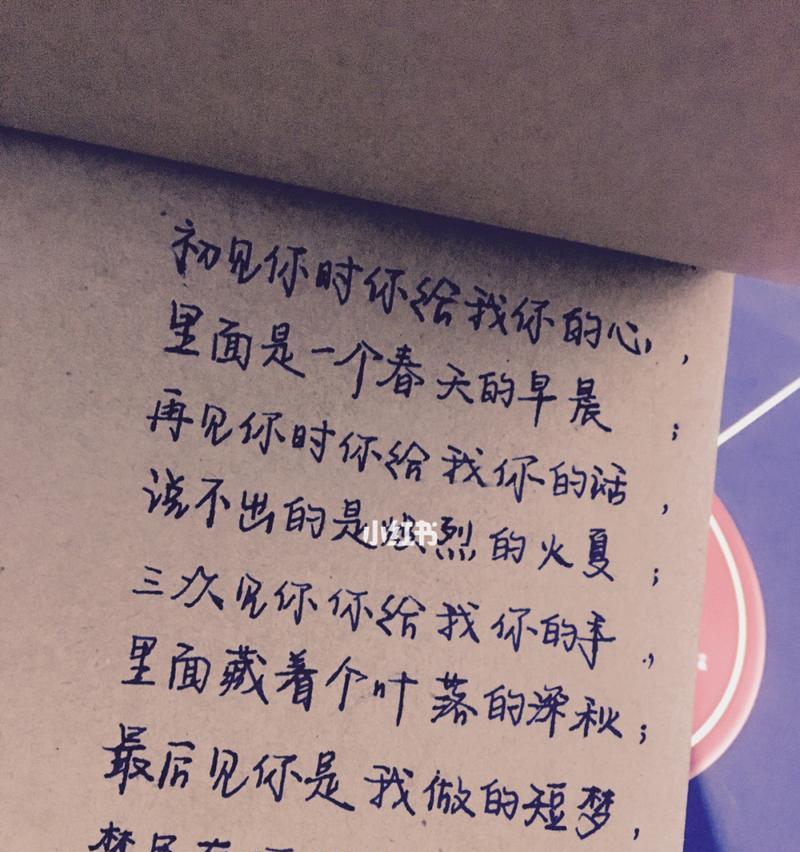 初见你时你给我你的心,
里面是一个春天的早晨;
再见你时你给我你的话,
说不出的是炽烈的火夏;
小红书
三次见你你给我你的手,
里面藏着个叶落的深秋;
最后见你是我做的短梦,
梦